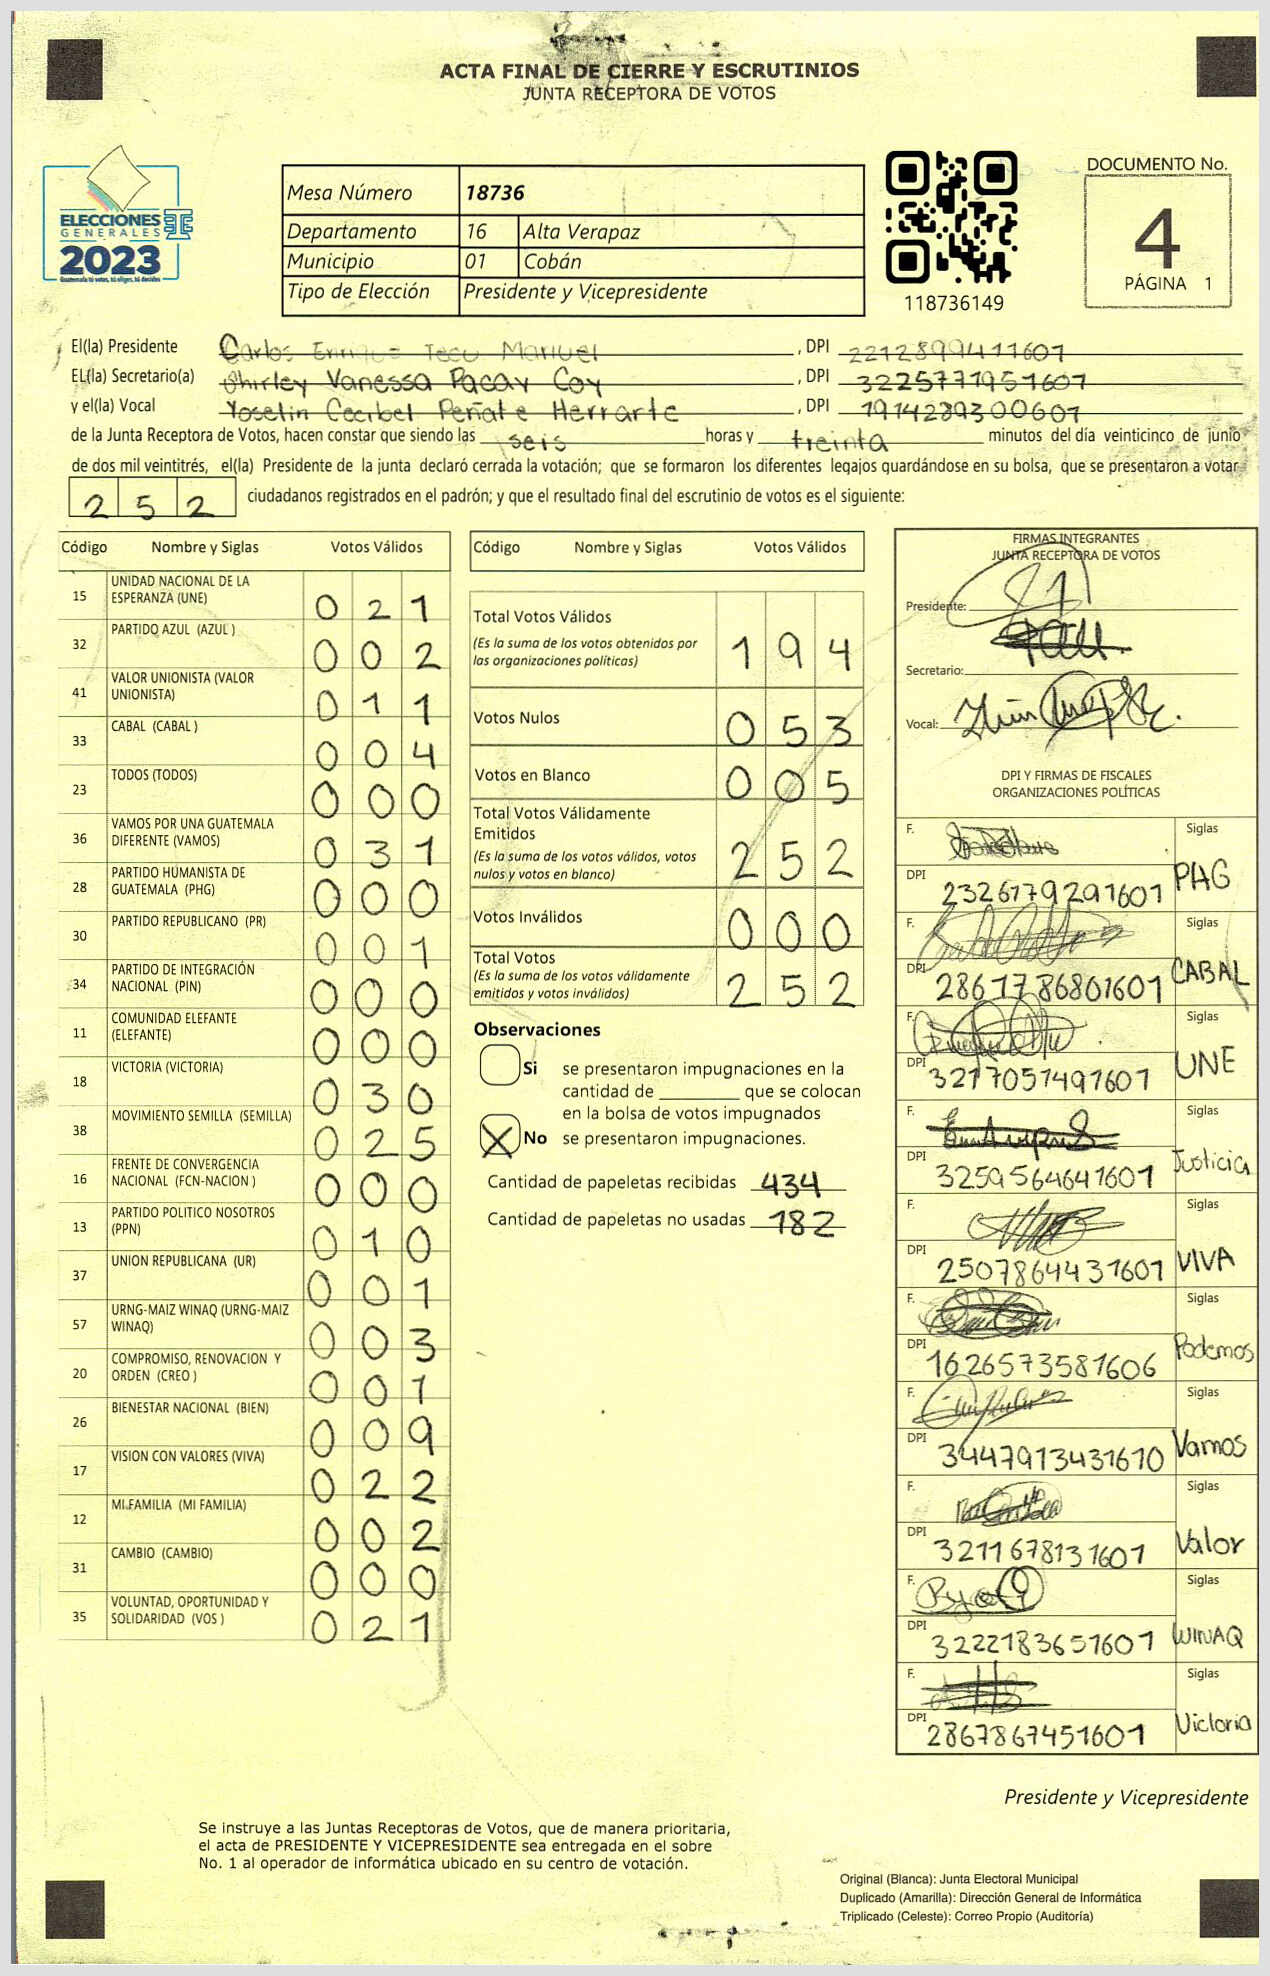 ACTA FINAL DE CIERRE Y ESCRUTINIOS
JUNTA RECEPTORA DE VOTOS
ELECCIONES
GENERALES
2023
Guatemala tú votas, tú eliges, tú decides
Mesa Número 18736
Departamento 16 Alta Verapaz
Municipio 01 Cobán
Tipo de Elección Presidente y Vicepresidente
118736149
DOCUMENTO No.
4
PÁGINA 1
El(la) Presidente Carlos Enrique Tecu Manuel, DPI 2212899411601
EL(la) Secretario(a) Shirley Vanessa Pacay Coy, DPI 3225771951601
y el(la) Vocal Yoselin Cecibel Peñate Herrarte, DPI 1914289300601
de la Junta Receptora de Votos, hacen constar que siendo las seis horas y treinta minutos del día veinticinco de junio
de dos mil veintitrés, el(la) Presidente de la junta declaró cerrada la votación; que se formaron los diferentes legajos guardándose en su bolsa, que se presentaron a votar
252 ciudadanos registrados en el padrón; y que el resultado final del escrutinio de votos es el siguiente:
Código Nombre y Siglas Votos Válidos
15 UNIDAD NACIONAL DE LA ESPERANZA (UNE) 021
32 PARTIDO AZUL (AZUL ) 002
41 VALOR UNIONISTA (VALOR UNIONISTA) 011
33 CABAL (CABAL ) 004
23 TODOS (TODOS) 000
36 VAMOS POR UNA GUATEMALA DIFERENTE (VAMOS) 031
28 PARTIDO HUMANISTA DE GUATEMALA (PHG) 000
30 PARTIDO REPUBLICANO (PR) 001
34 PARTIDO DE INTEGRACIÓN NACIONAL (PIN) 000
11 COMUNIDAD ELEFANTE (ELEFANTE) 000
18 VICTORIA (VICTORIA) 030
38 MOVIMIENTO SEMILLA (SEMILLA) 025
16 FRENTE DE CONVERGENCIA NACIONAL (FCN-NACION ) 000
13 PARTIDO POLITICO NOSOTROS (PPN) 010
37 UNION REPUBLICANA (UR) 001
57 URNG-MAIZ WINAQ (URNG-MAIZ WINAQ) 003
20 COMPROMISO, RENOVACION Y ORDEN (CREO ) 001
26 BIENESTAR NACIONAL (BIEN) 009
17 VISION CON VALORES (VIVA) 022
12 MI FAMILIA (MI FAMILIA) 002
31 CAMBIO (CAMBIO) 000
35 VOLUNTAD, OPORTUNIDAD Y SOLIDARIDAD (VOS ) 021
Código Nombre y Siglas Votos Válidos
Total Votos Válidos 194
(Es la suma de los votos obtenidos por
las organizaciones políticas)
Votos Nulos 053
Votos en Blanco 005
Total Votos Válidamente
Emitidos 252
(Es la suma de los votos válidos, votos
nulos y votos en blanco)
Votos Inválidos 000
Total Votos 252
(Es la suma de los votos válidamente
emitidos y votos inválidos)
Observaciones
Si se presentaron impugnaciones en la
cantidad de ________ que se colocan
en la bolsa de votos impugnados
X No se presentaron impugnaciones.
Cantidad de papeletas recibidas 434
Cantidad de papeletas no usadas 182
FIRMAS INTEGRANTES
JUNTA RECEPTORA DE VOTOS
Presidente:
Secretario:
Vocal:
DPI Y FIRMAS DE FISCALES
ORGANIZACIONES POLÍTICAS
F. Siglas
DPI 2326179291601 PHG
F. Siglas
DPI 2861786801601 CABAL
F. Siglas
DPI 3217051491601 UNE
F. Siglas
DPI 3259564641601 Justicia
F. Siglas
DPI 2507864431601 VIVA
F. Siglas
DPI 1626573581606 Podemos
F. Siglas
DPI 3447913431610 Vamos
F. Siglas
DPI 3211678131601 Valor
F. Siglas
DPI 3222183651601 WINAQ
F. Siglas
DPI 2867867451601 Victoria
Presidente y Vicepresidente
Se instruye a las Juntas Receptoras de Votos, que de manera prioritaria,
el acta de PRESIDENTE Y VICEPRESIDENTE sea entregada en el sobre
No. 1 al operador de informática ubicado en su centro de votación.
Original (Blanca): Junta Electoral Municipal
Duplicado (Amarilla): Dirección General de Informática
Triplicado (Celeste): Correo Propio (Auditoría)